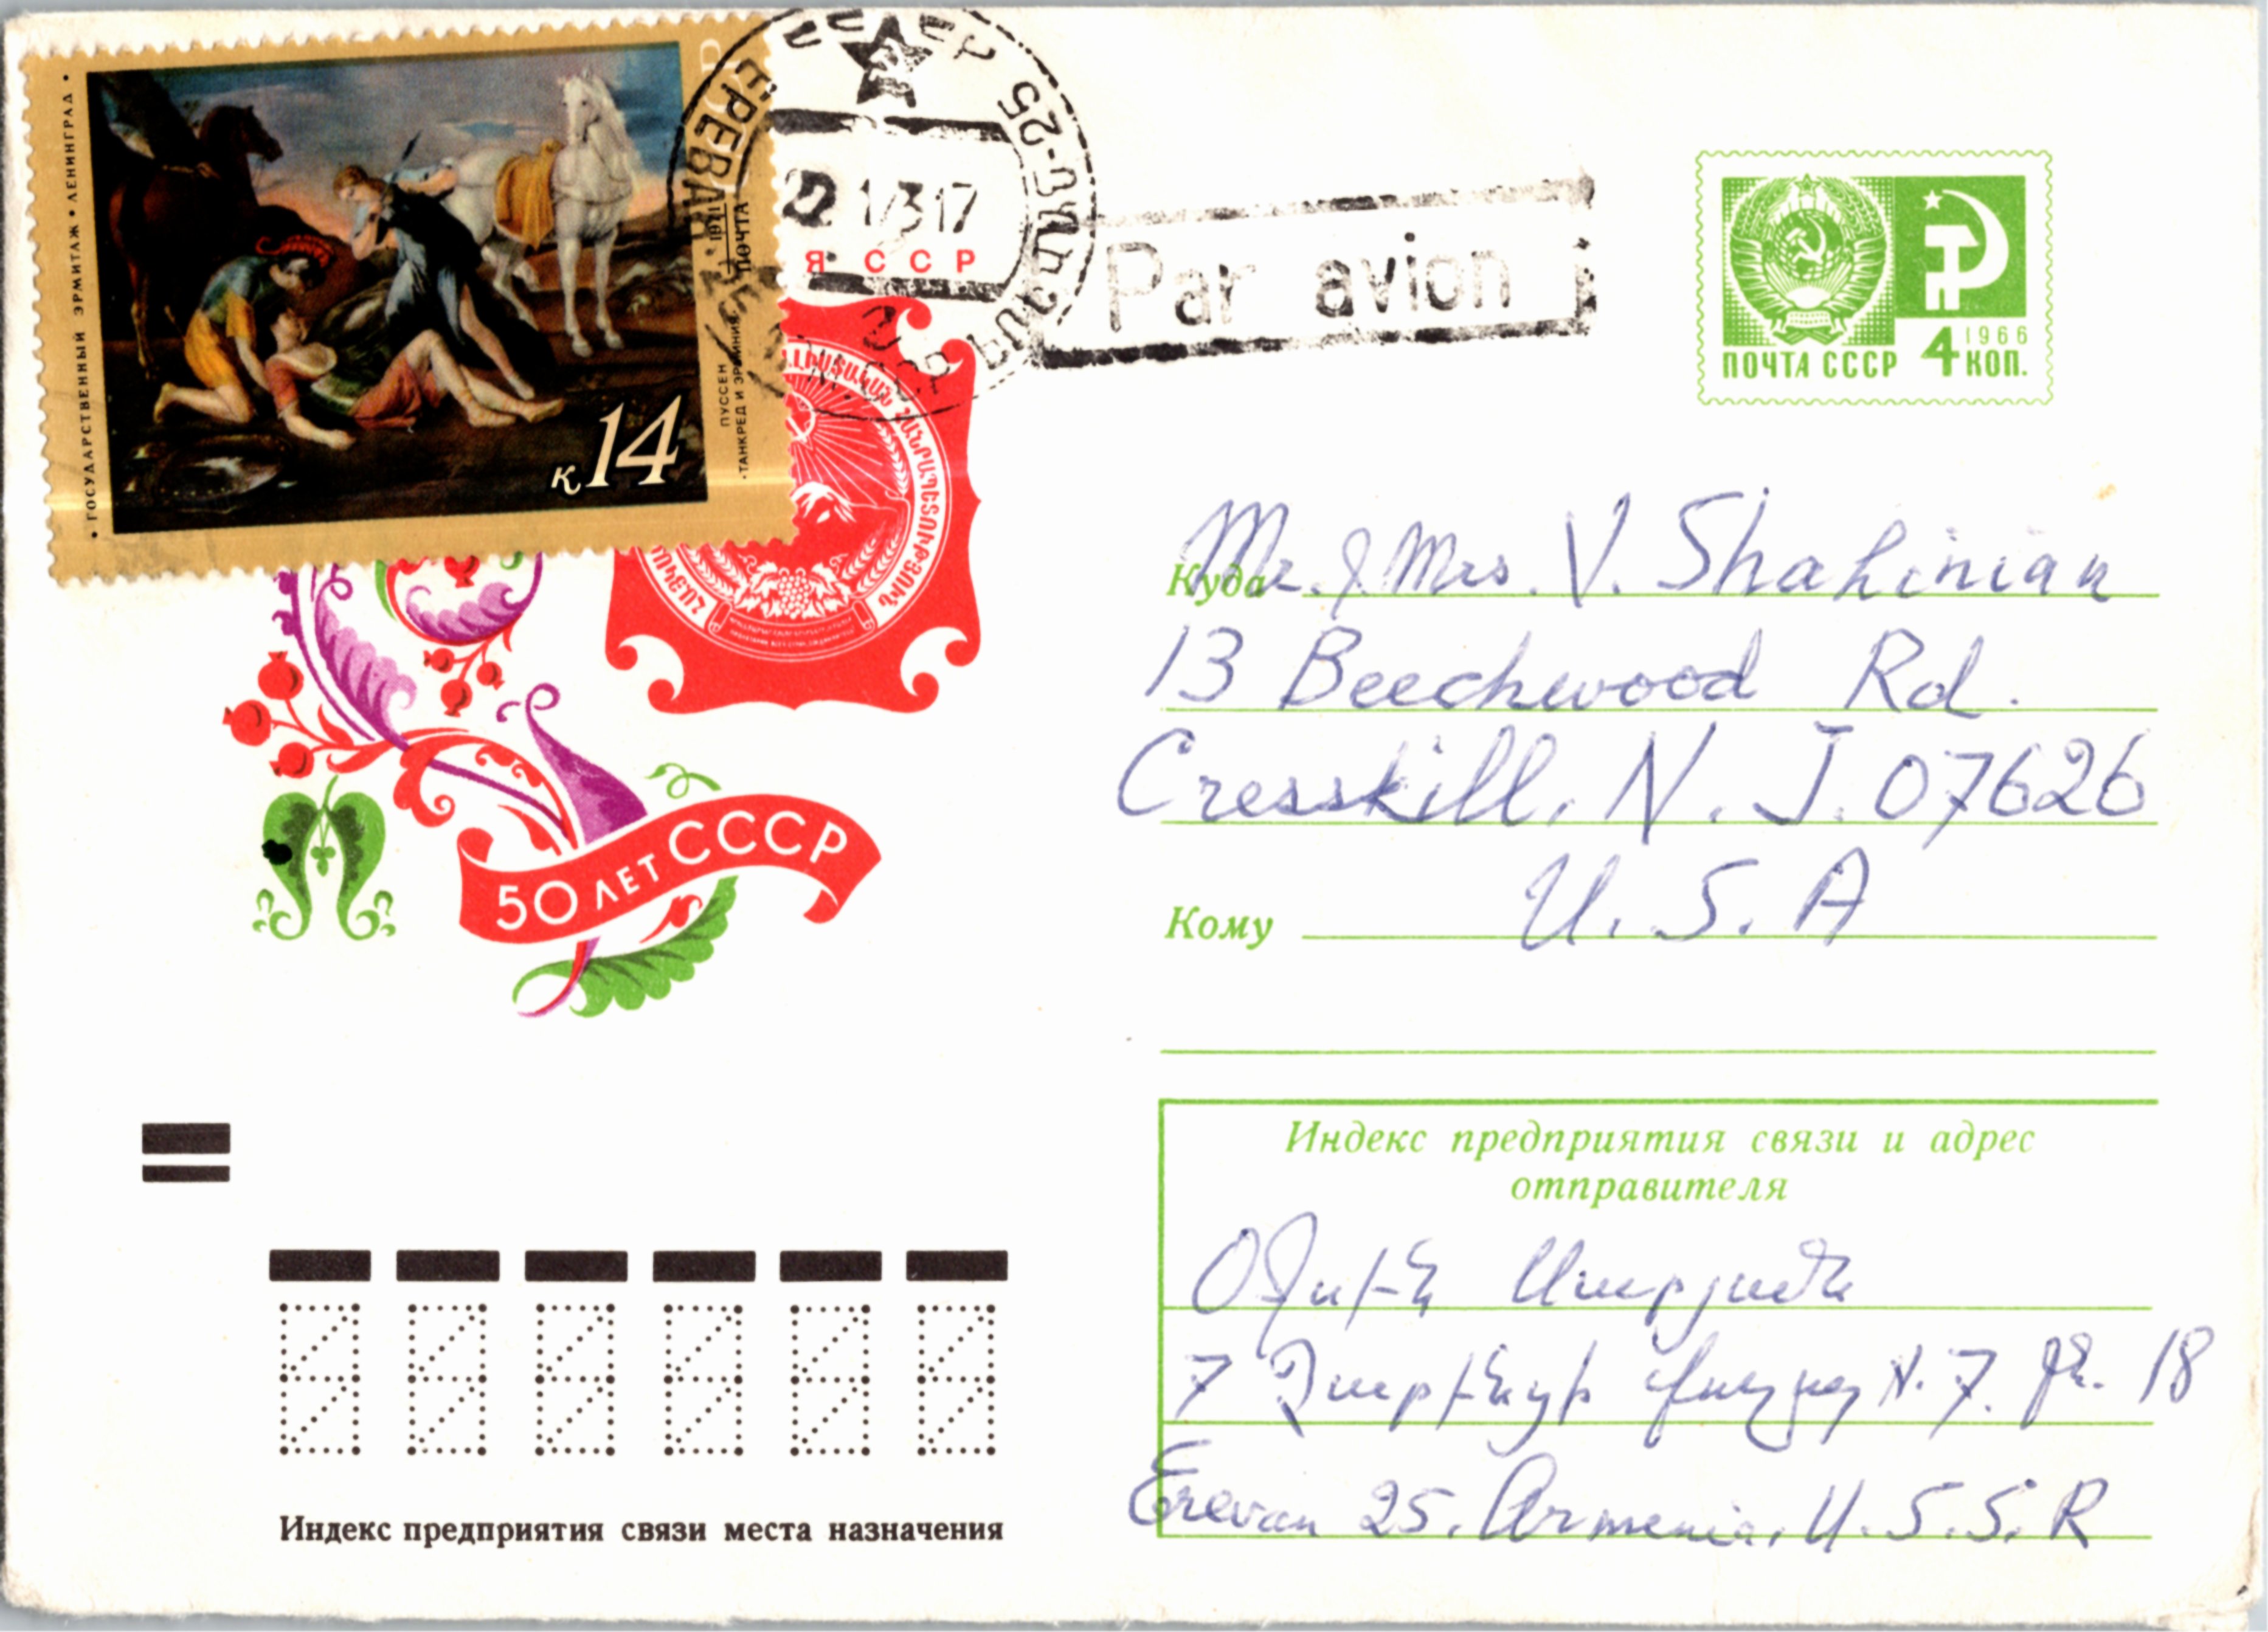 • ГОСУДАРСТВЕННЫЙ ЭРМИТАЖ • ЛЕНИНГРАД •
к 14
ПУССЕН
•ТАНКРЕД И ЭРМИНИЯ•
1971
ПОЧТА
ЕРЕВАН-25
ԵՐԵՎԱՆ-25
Я ССР
Par avion
ПОЧТА СССР
1966
4 КОП.
ՀԱՆՐԱՊԵՏՈՒԹՅՈՒՆ
50 ЛЕТ СССР
Куда Mr. & Mrs. V. Shahinian
13 Beechwood Rd.
Cresskill, N. J. 07626
Кому U. S. A
Индекс предприятия связи и адрес
отправителя
7 N. 7. 18
Erevan 25. Armenia. U. S. S. R
Индекс предприятия связи места назначения